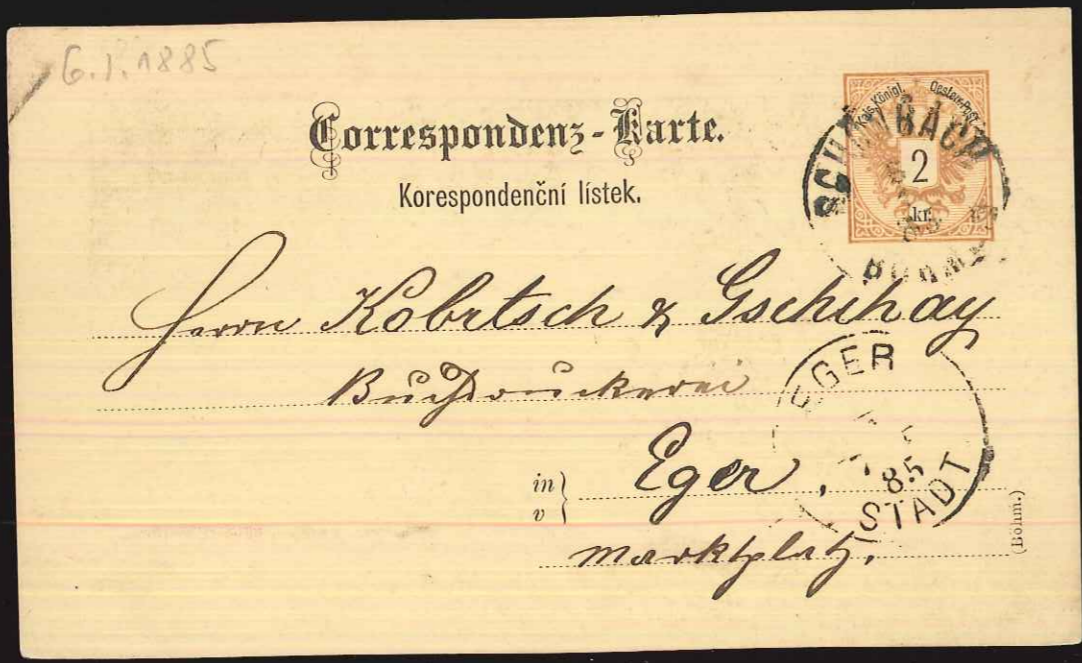 6.I.1885
Correspondenz-Karte.
Korespondenční lístek.
Kais. Königl. Oesterr. Post
2
kr.
SCHÖNBACH
Herrn Kobrtsch & Gschihay
Buchdruckerei
EGER
85
STADT
in
v
Eger,
Marktplatz,
(Böhm.)